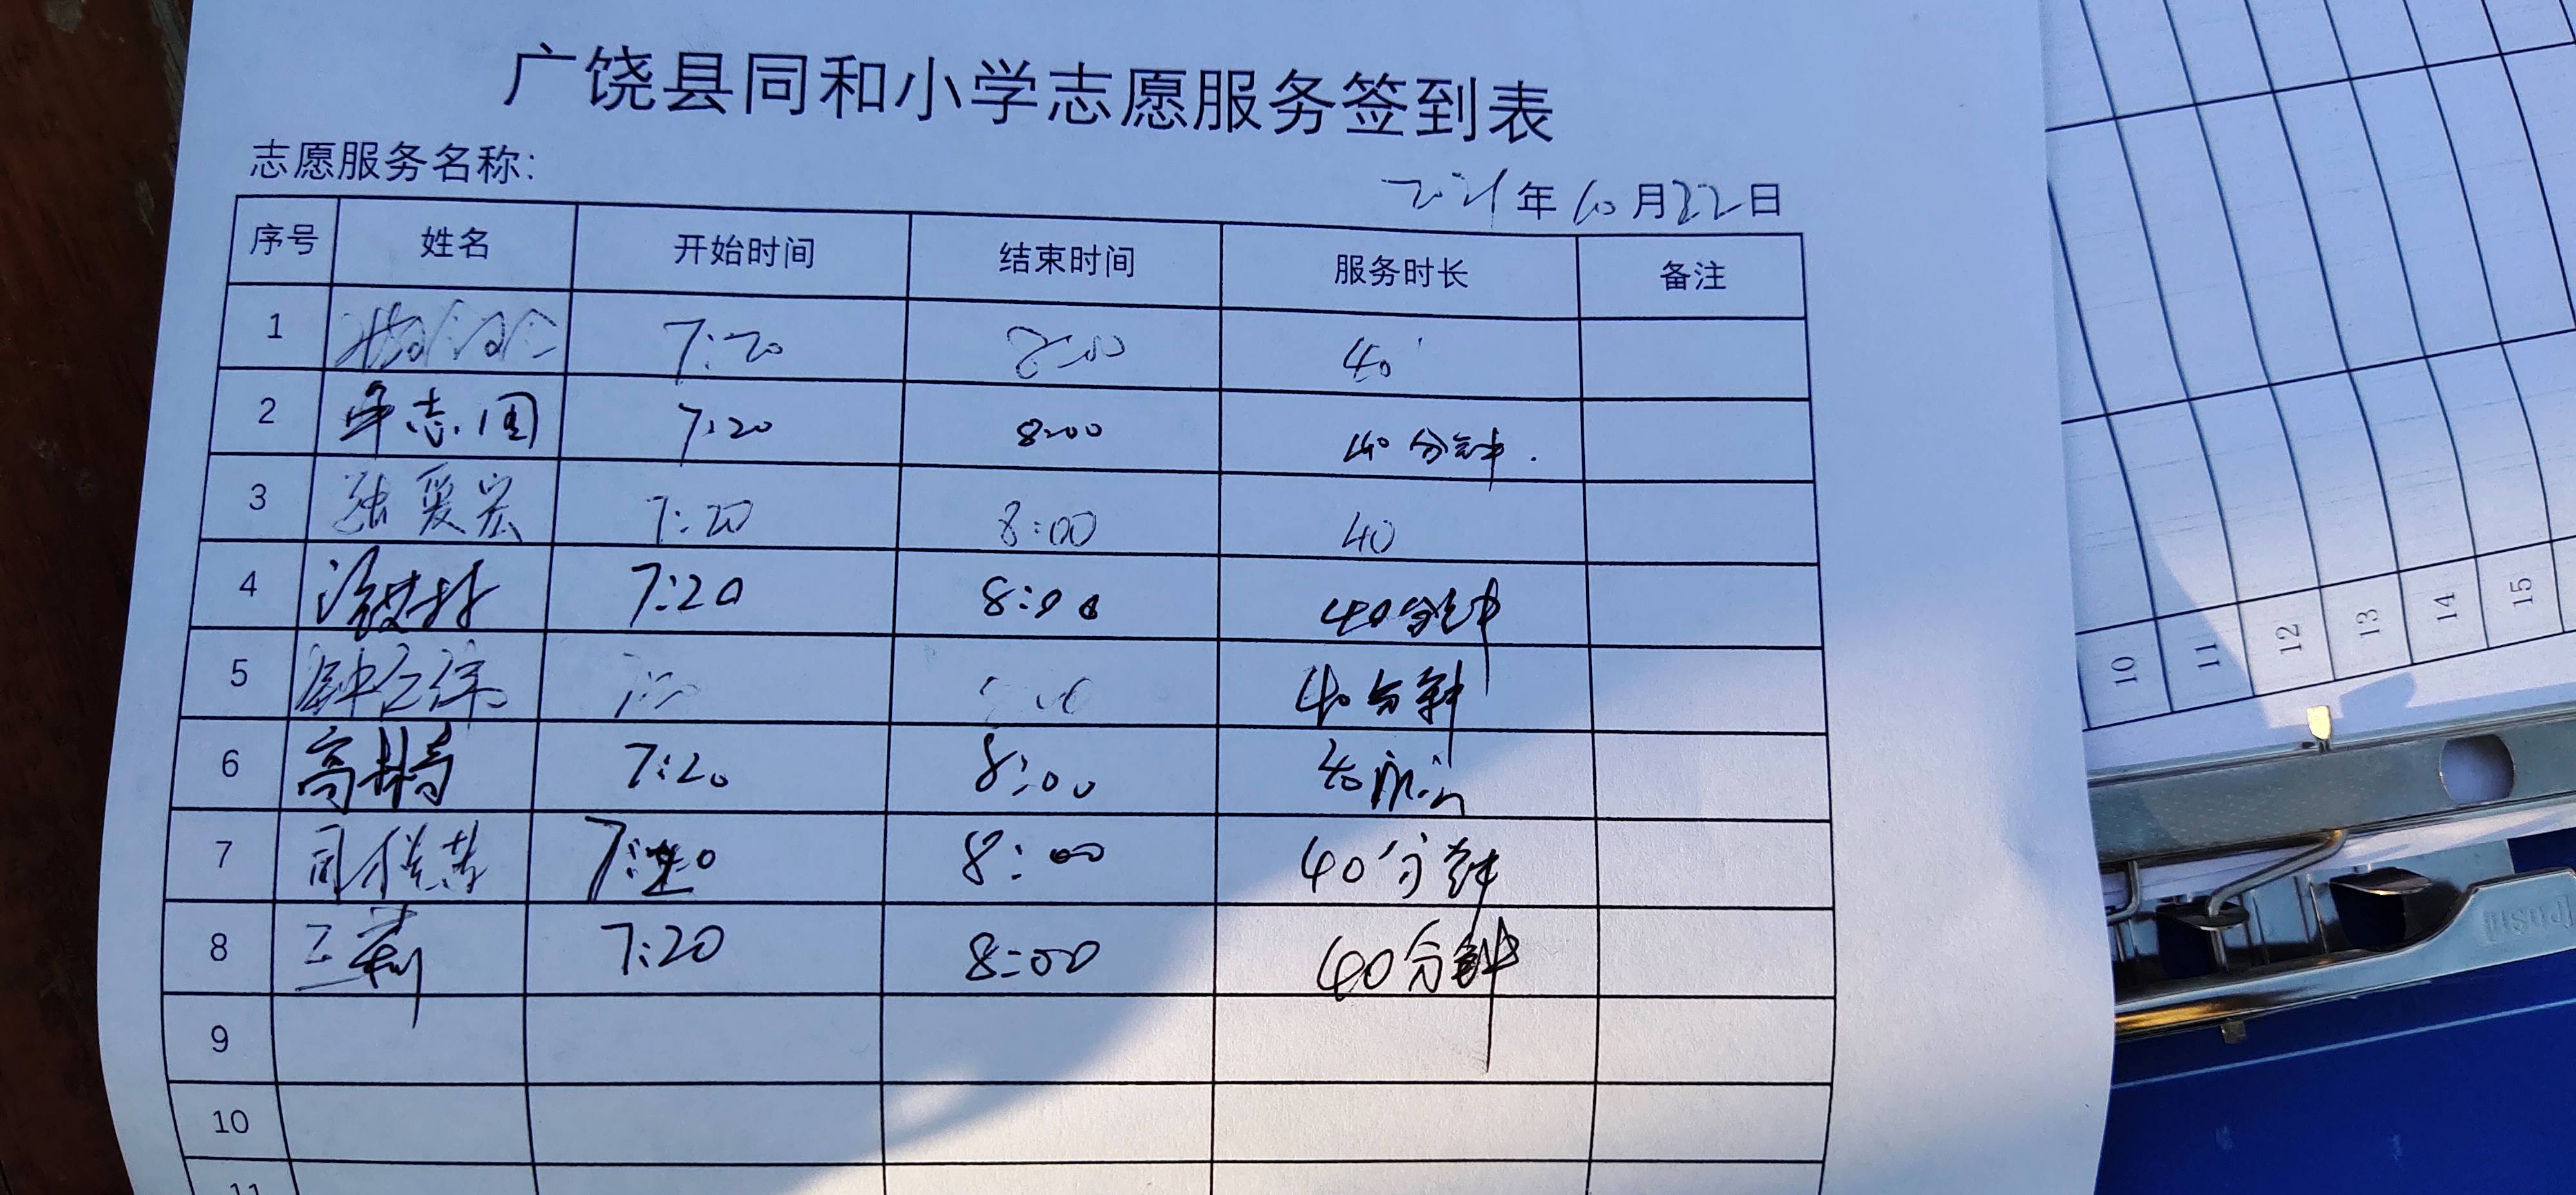 广饶县同和小学志愿服务签到表
志愿服务名称：
2021年10月22日
序号 姓名 开始时间 结束时间 服务时长 备注
1 7:20 8:00 40'
2 7:20 8:00 40分钟.
3 张爱宏 7:20 8:00 40
4 7:20 8:00 40分钟
5 40分钟
6 7:20 8:00 40
7 7:20 8:00 40分钟
8 王莉 7:20 8:00 40分钟
9
10
11
10
11
12
13
14
15
PUSH